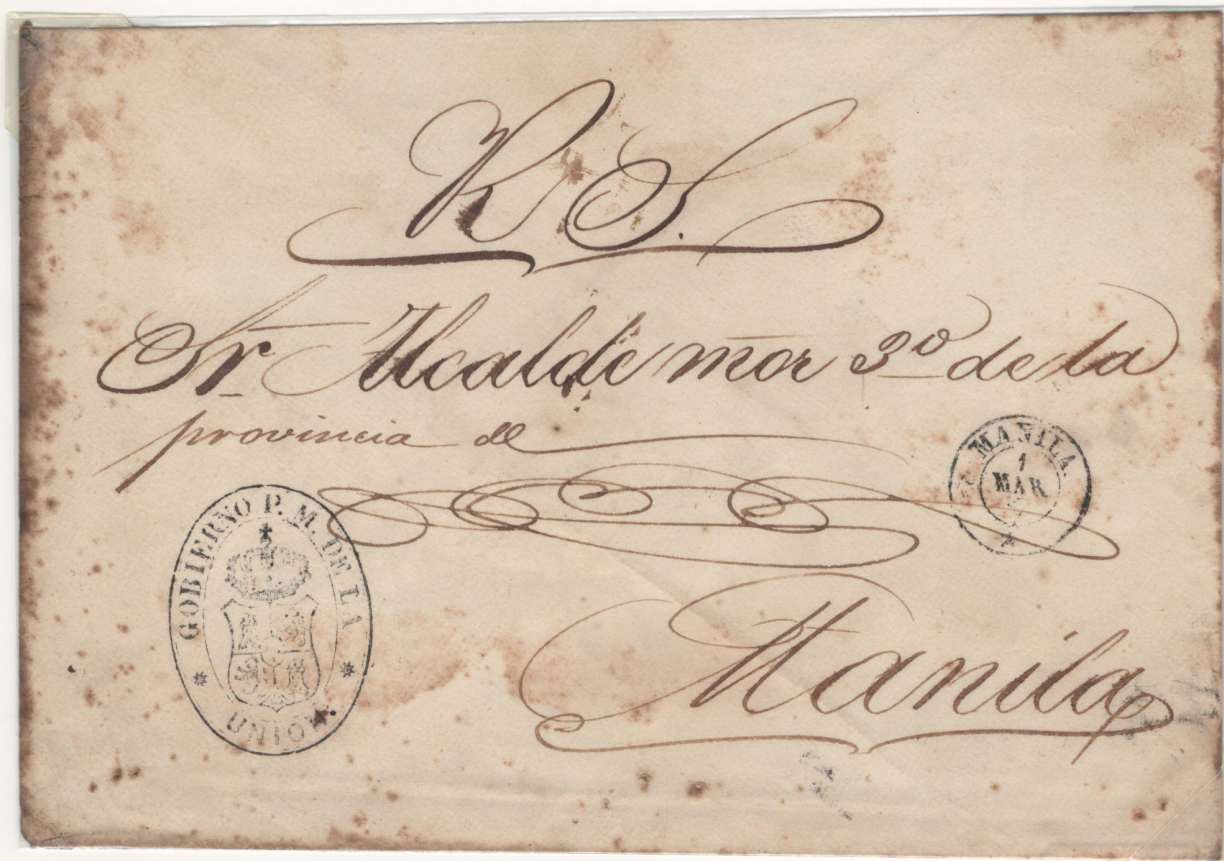 R S.
Sr Alcalde mor 3º de la
provincia de
Manila
MANILA
1
MAR
GOBIERNO P. M. DE LA
UNION.